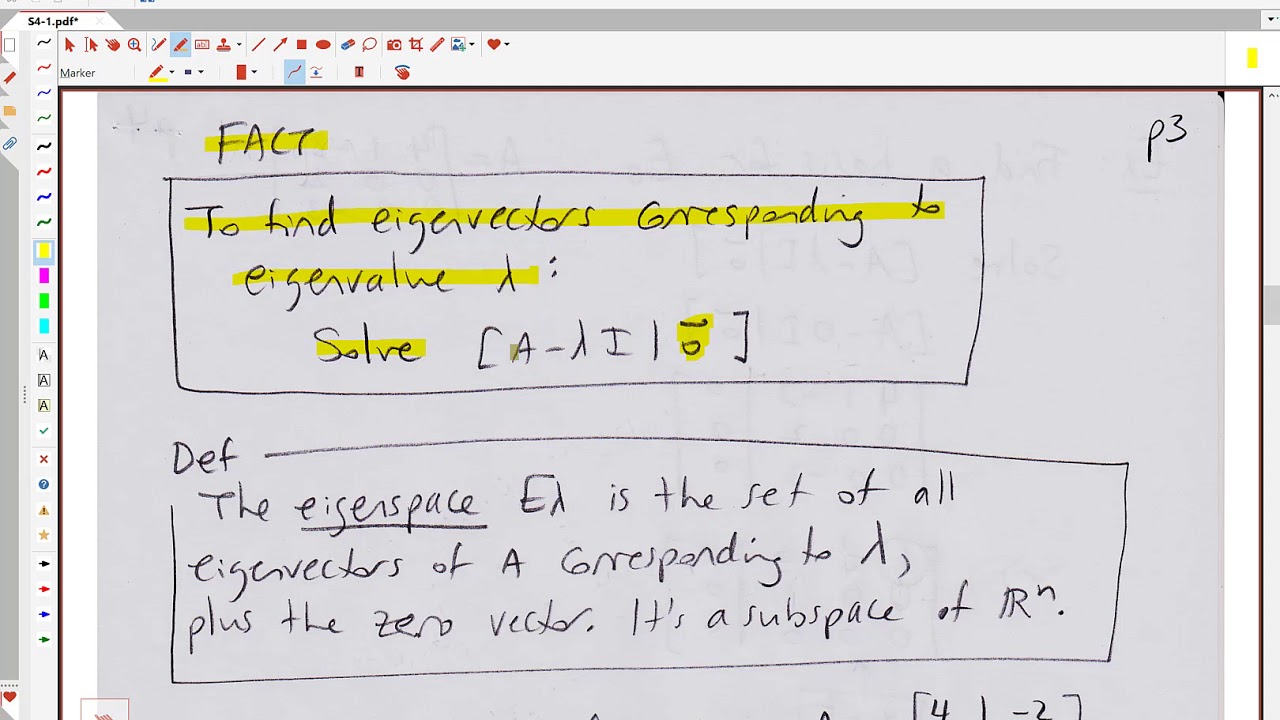 S4-1.pdf*
Marker
FACT
p3
To find eigenvectors corresponding to
eigenvalue λ:
Solve [A-λI | 0̄]
Def
The eigenspace Eλ is the set of all
eigenvectors of A corresponding to λ,
plus the zero vector. It's a subspace of ℝⁿ.
[4 1 -2]